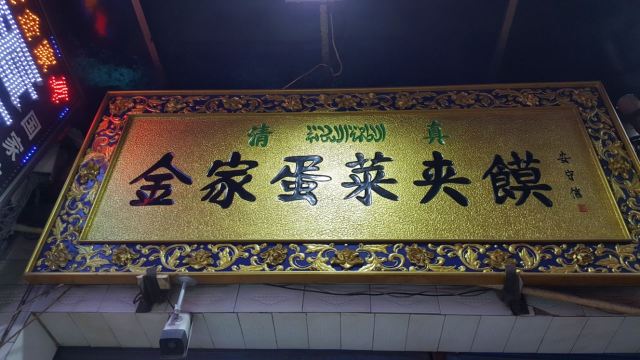 清 真
金家蛋菜夹馍
安守信
国家